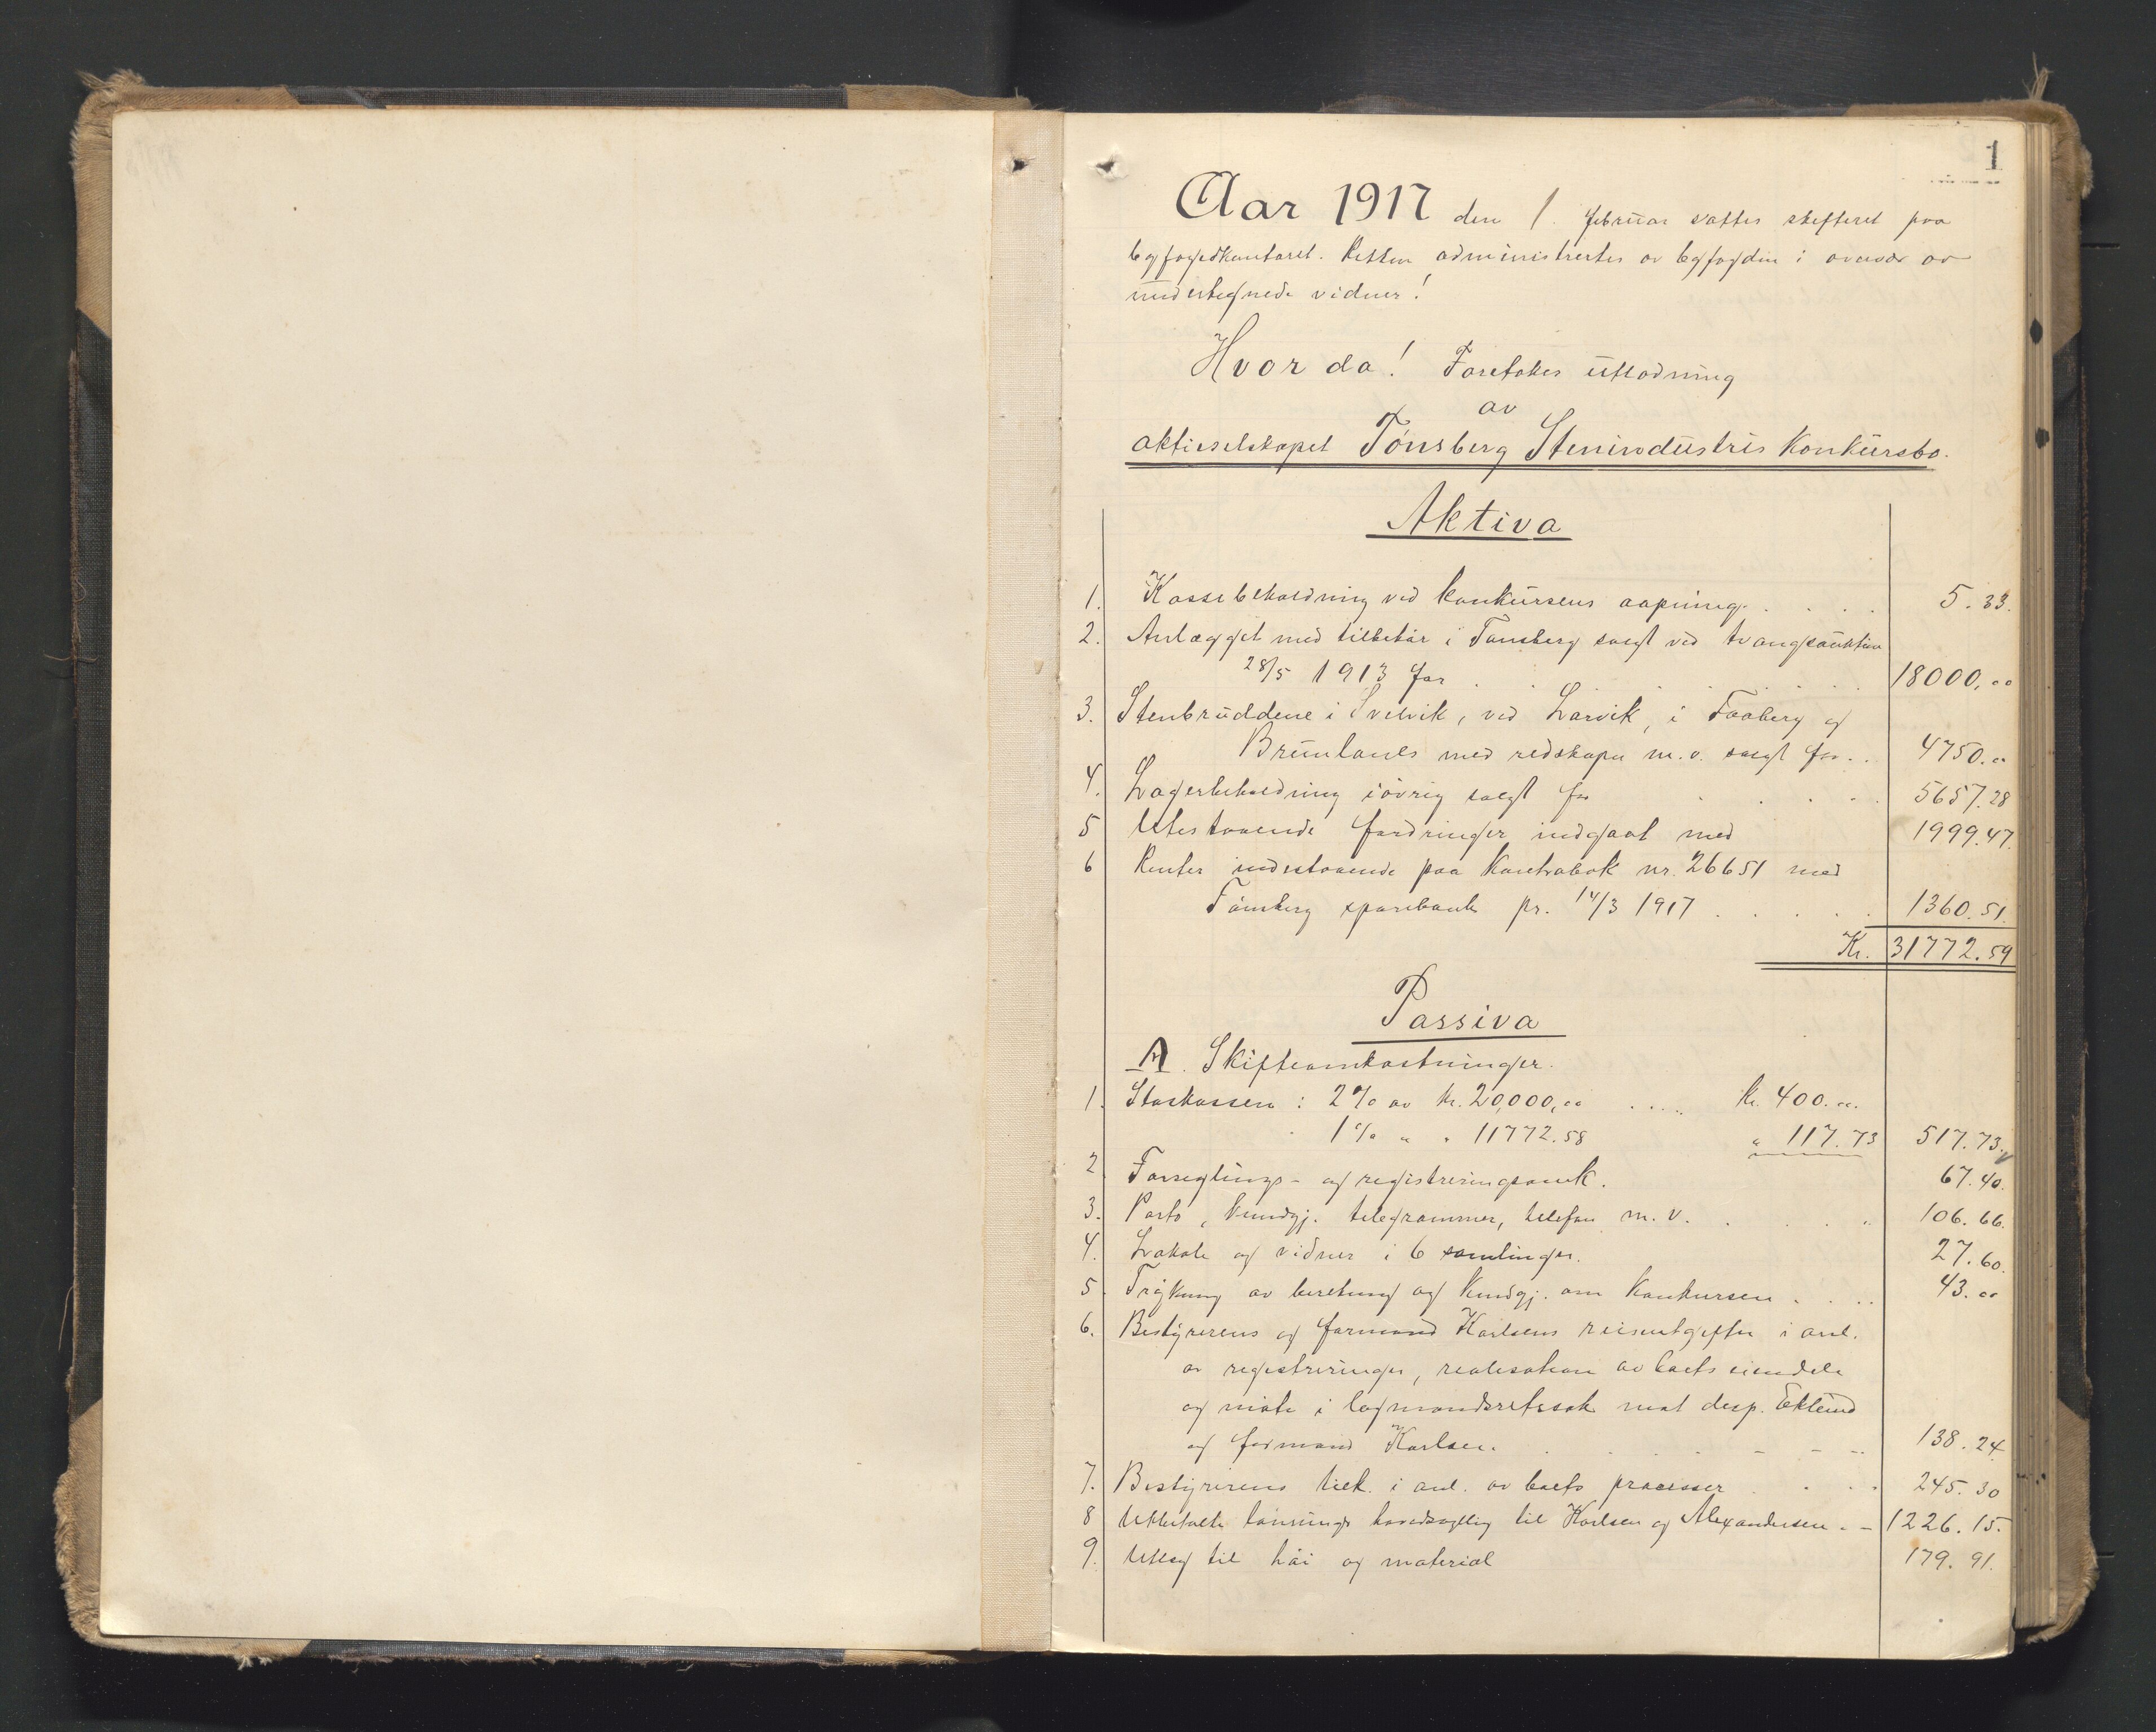 1
Aar 1917 den 1. februar sattes skifteret paa
byfogedkontoret. Retten administrertes av byfogden i overvær av
undertegnede vidner!
Hvorda! Foretokes utlodning
av
aktieselskapet Tønsberg Stenindustris Konkursbo.
Aktiva
1. Kassebeholdning ved konkursens aapning. . . . . 5.33.
2. Anlægget med tilbehør i Tønsberg solgt ved tvangsauktion
28/5 1913 for . . . . . . . 18000,00
3. Stenbruddene i Svelvik, ved Larvik, i Faaberg og
Brunlanes med redskaper m.v. solgt for . . 4750.00
4. Lagerbeholdning iøvrig solgt for . . . . . 5657.28
5 Utestaaende fordringer indgaat med 1999.47.
6 Renter indestaaende paa Kontrabok nr. 26651 med
Tønsberg sparebank pr. 14/3 1917 . . . . . 1360.51.
Kr. 31772.59
Passiva
A. Skifteomkostninger.
1. Statskassen: 2% av kr. 20,000,00 . . . . kr. 400.00.
1% " " 11772.58 " 117.73 517.73.
2 Forseglings- og registreringsomk. 67.40.
3. Porto, kundgj. telegrammer, telefon m.v. . . . . 106.66.
4. Lokale og vidner i 6 samlinger. 27.60.
5. Trykning av beretning og kundgj. om konkursen . . . . 43.00
6. Bestyrerens og formand Karlsens reiseutgifter i anl.
av registreringer, realisation av boets eiendele
og møte i lagmandsretssak mot disp. Eklund
og formand Karlsen. . . . . . 138.24
7. Bestyrerens tilk. i anl. av boets processer . . . . 245.30
8 Utbetalte lønninger hovedsagelig til Karlsen og Alexandersen . - 1226.15.
9. Utlæg til høi og material 179.91.